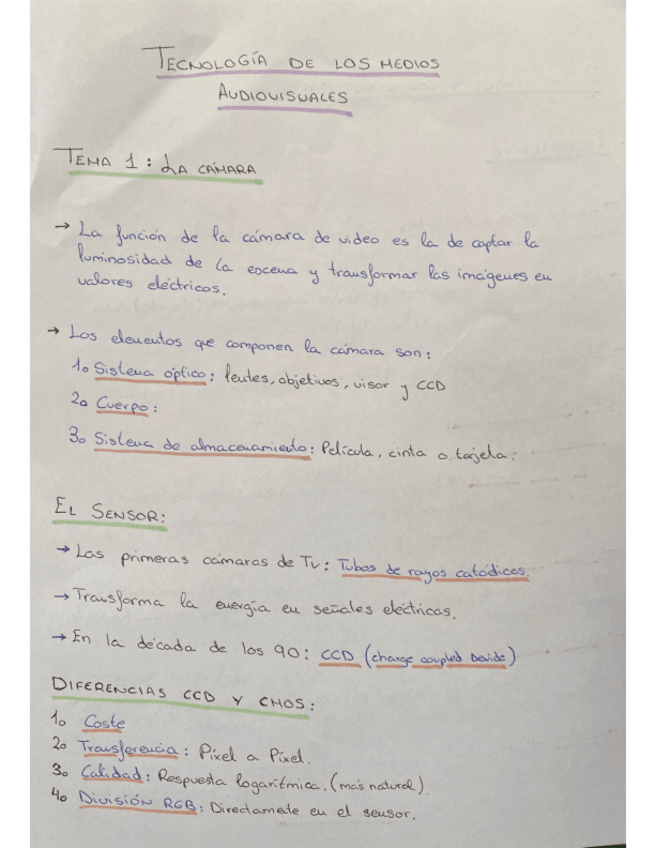 TECNOLOGÍA DE LOS MEDIOS
AUDIOVISUALES
TEMA 1: LA CÁMARA
→ La función de la cámara de video es la de captar la
luminosidad de la escena y transformar las imágenes en
valores eléctricos.
→ Los elementos que componen la cámara son:
1o Sistema óptico: lentes, objetivos, visor y CCD
2o Cuerpo:
3o Sistema de almacenamiento: Película, cinta o tarjeta.
EL SENSOR:
→ Las primeras cámaras de TV: Tubos de rayos catódicos.
→ Transforma la energía en señales eléctricas.
→ En la década de los 90: CCD (charge coupled Devide)
DIFERENCIAS CCD Y CMOS:
1o Coste
2o Transferencia: Píxel a Píxel.
3o Calidad: Respuesta logarítmica. (más natural).
4o División RGB: Directamete en el sensor.